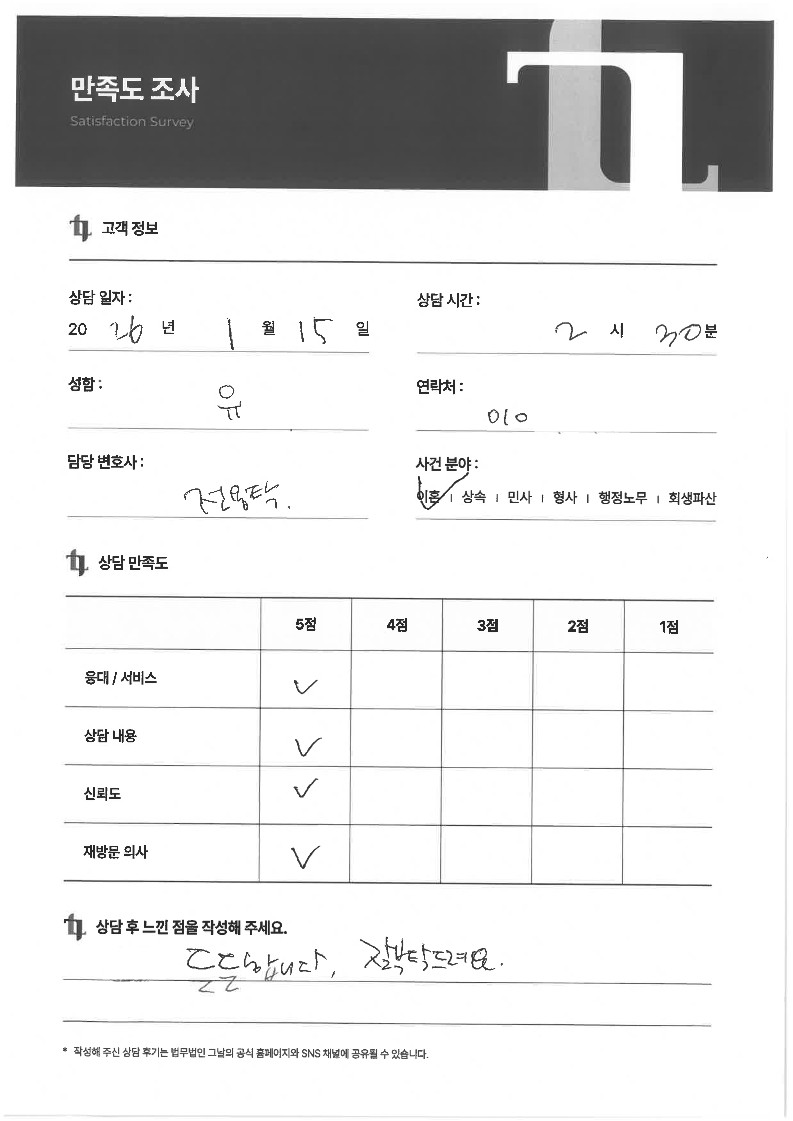 만족도 조사
Satisfaction Survey
고객 정보
상담 일자 : 상담 시간 :
20 26 년 1 월 15 일 2 시 30 분
성함 : 유 연락처 : 010
담당 변호사 : 전용탁. 사건 분야 :
이혼 | 상속 | 민사 | 형사 | 행정노무 | 회생파산
상담 만족도
5점 4점 3점 2점 1점
응대 / 서비스 ✓
상담 내용 ✓
신뢰도 ✓
재방문 의사 ✓
상담 후 느낀 점을 작성해 주세요.
든든합니다, 잘부탁드려요.
* 작성해 주신 상담 후기는 법무법인 그날의 공식 홈페이지와 SNS 채널에 공유될 수 있습니다.